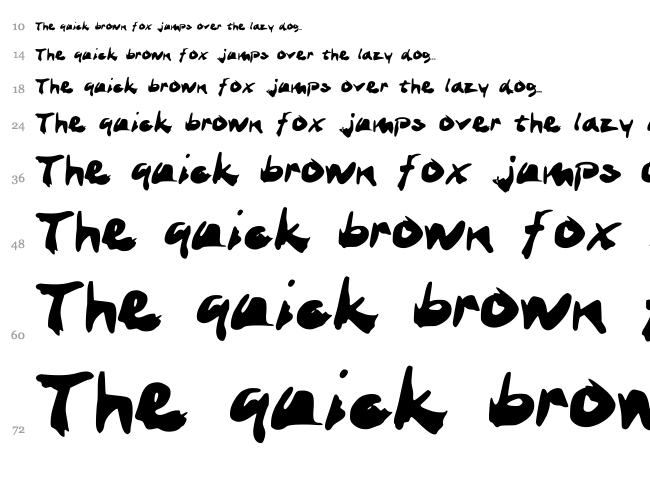 10 The quick brown fox jumps over the lazy dog.
14 The quick brown fox jumps over the lazy dog.
18 The quick brown fox jumps over the lazy dog.
24 The quick brown fox jumps over the lazy
36 The quick brown fox jumps
48 The quick brown fox
60 The quick brown
72 The quick brow